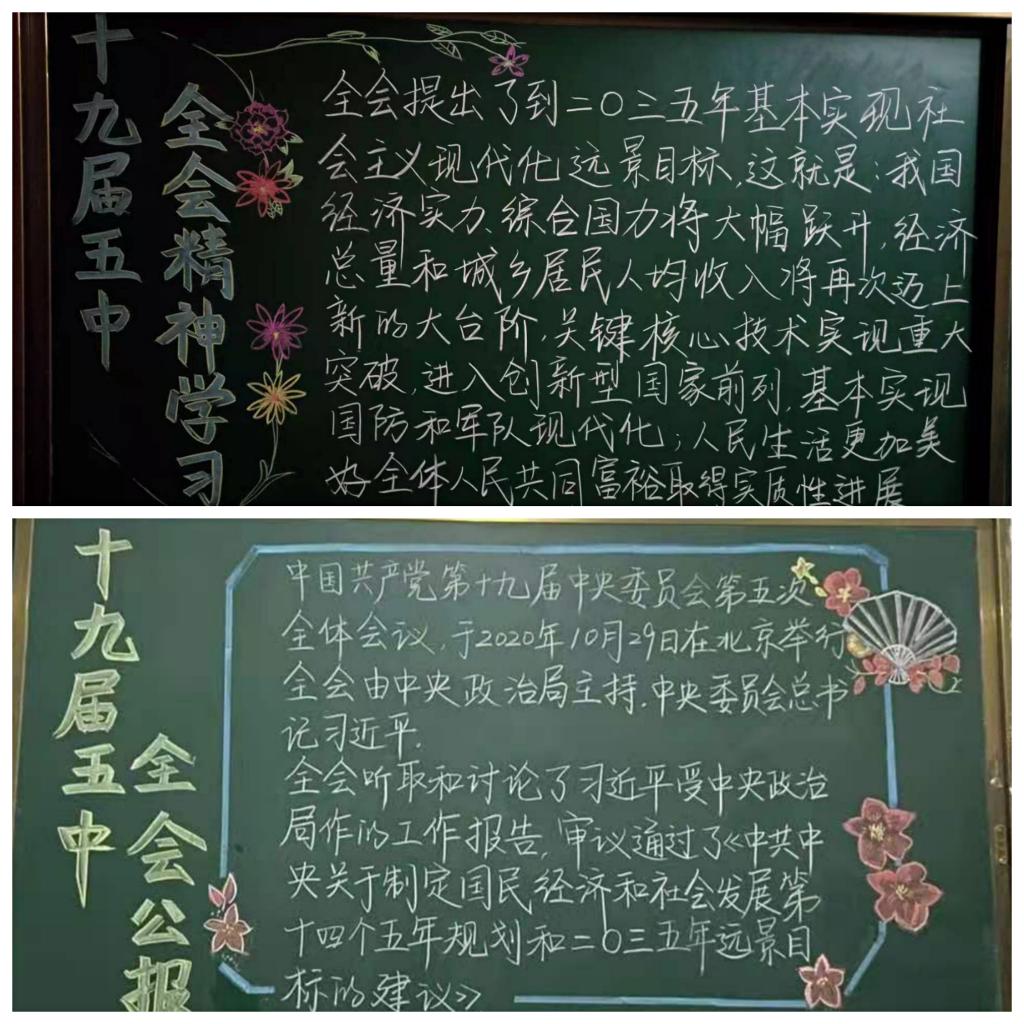 十九届五中
全会精神学习
全会提出了到二〇三五年基本实现社
会主义现代化远景目标,这就是:我国
经济实力、综合国力将大幅跃升,经济
总量和城乡居民人均收入将再次迈上
新的大台阶,关键核心技术实现重大
突破,进入创新型国家前列,基本实现
国防和军队现代化;人民生活更加美
好全体人民共同富裕取得实质性进展
十九届五中
全会公报
中国共产党第十九届中央委员会第五次
全体会议,于2020年10月29日在北京举行
全会由中央政治局主持.中央委员会总书
记习近平.
全会听取和讨论了习近平受中央政治
局作的工作报告,审议通过了《中共中
央关于制定国民经济和社会发展第
十四个五年规划和二〇三五年远景目
标的建议》